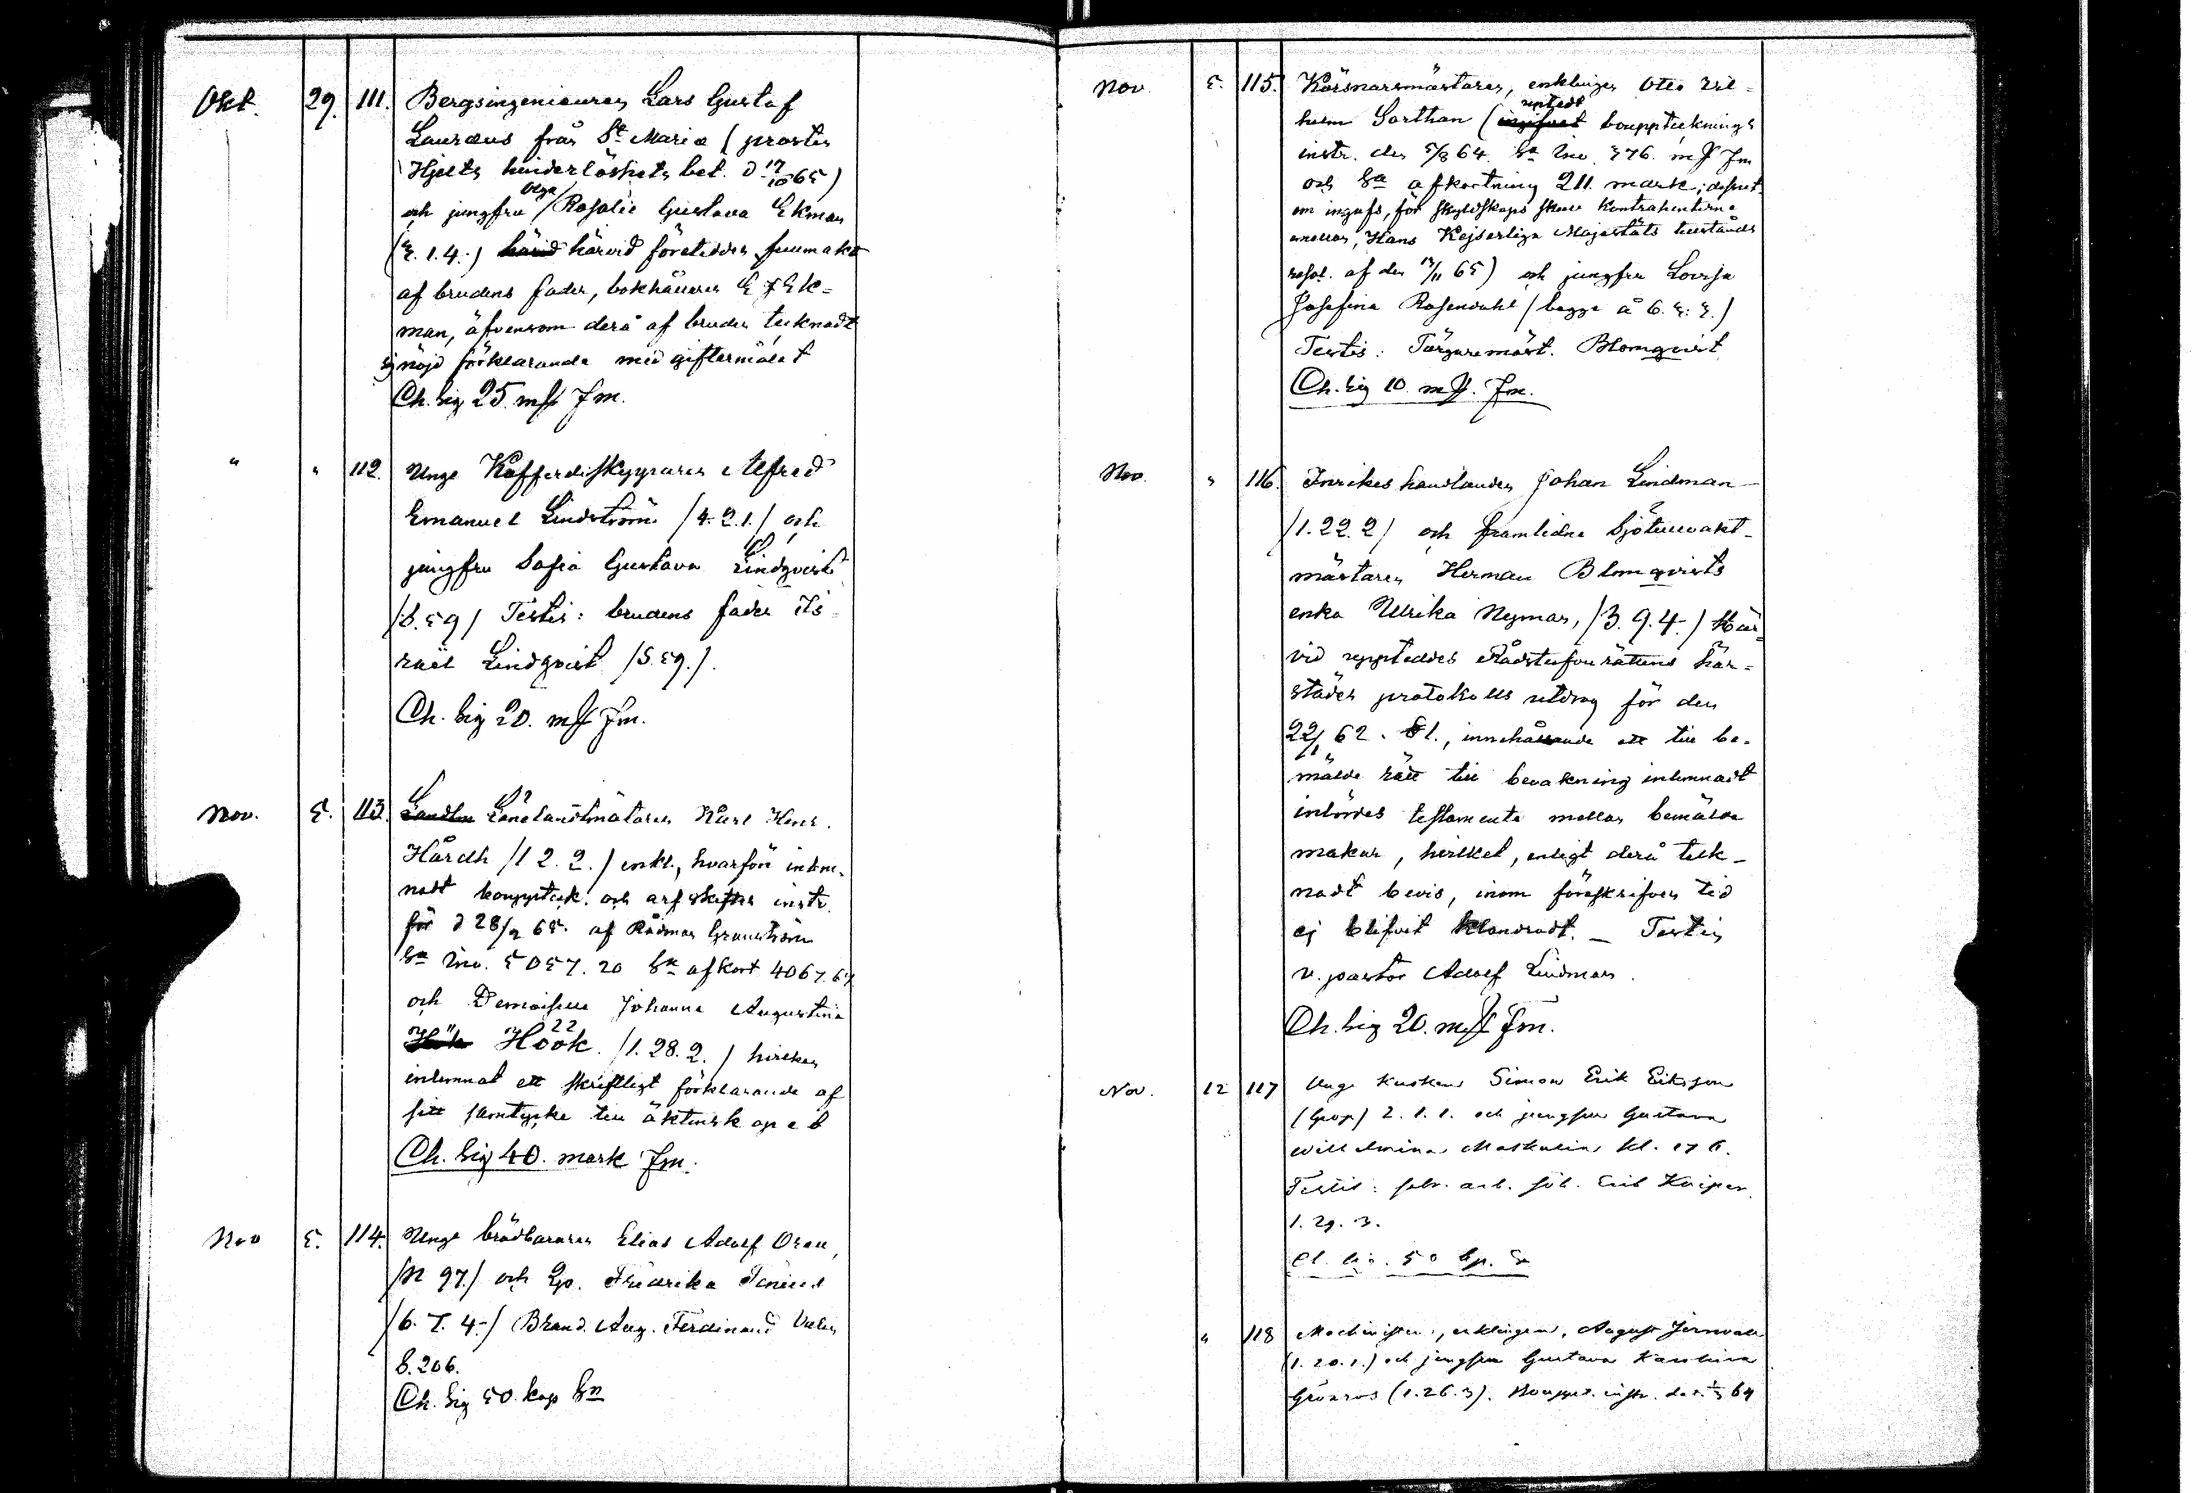 Okt. 29. 111. Bergsingeniouren Lars Gustaf
Lauræus från St Maria (prosten
Hjelts hinderlöshets bet. d 17/10 65)
och jungfru Olga Rosalie Gustava Ekman
(E. 1.4.) härvid företeddes fullmakt
af brudens fader, bokhållaren E J Ek=
man, äfvensom derå af bruden tecknadt
sig nöjd förklarande med giftermålet
Ch. Sig 25. mk fm.
" " 112. Unge Kofferdiskepparen Alfred
Emanuel Lindström /4.2.1./ och
jungfru Sofia Gustava Lindqvist
/S.59/ Testis: brudens fader Is-
rael Lindqvist /S.59./.
Ch. Sig 20. mk fm.
Nov. 5. 113. Landtm Länelandtmätaren Karl Henr.
Hårdh /1 2. 2./ enkl., hvarföre inlem-
nadt bouppteck. och arfskiftes instr.
för d 28/9 65. af Rådman Granström
Sa Inv. 5057. 20 Sa afkort 4067.67
och Demoiselle Johanna Augustina
Höök. /1. 28. 2./ hvilken
inlemnat ett skriftligt förklarande af
sitt samtycke till äktenskapet
Ch. Sig 40. mark fm.
Nov 5. 114. Unge brädbararen Elias Adolf Oren,
/N 97./ och Qp. Fredrika
/6. 7. 4./ Brand. Aug. Ferdinand
S. 206.
Ch. Sig 50. kop Sr
Nov. 5. 115. Körsnärsmästaren, enklingen Otto Vil=
helm Sarthan (ingifvet uptedt boupptecknings
instr. den 5/8 64. Sa Inv. 376. mk fm
och Sa afkortning 211. mark; dessut
om ingafs, för skyldskaps skull kontrahenterna
emellan, Hans Kejserliga Majestäts tillstånds
resol. af den 13/11 65) och jungfru Lovisa
Josefina Rosendahl /begge å 6. 5: 5./
Testis: Färgaremäst. Blomqvist
Ch. Sig 10 mk. fm.
Nov. " 116. Inrikes handlanden Johan Lindman
/1. 22. 2/ och framlidne Sjötullvakt-
mästaren Herman Blomqvists
enka Ulrika Nyman, /3. 9. 4./ Här=
vid uppteddes Rådstufvurättens här=
städes protokolls utdrag för den
22/1 62. §1., innehållande ett till be-
mälde rätt till bevakning inlemnadt
inbördes testamente mellan bemälde
makar, hvilket, enligt derå teck-
nadt bevis, inom föreskrifven tid
ej blifvit klandradt. _ Testis
v. pastor Adolf Lindman.
Ch. Sig 20. mk fm.
Nov. 12 117 Unge Kusken Simon Erik Eriksson
(Grop) 2. 1. 1. och jungfru Gustava
Willhelmina
Testis: fabr. arb. Joh. Erik
1. 29. 3.
Ch. Sig. 50 kp. Sr
" 118 Machinisten, enklingen, August Jernvall
(1. 20. 1.) och jungfru Gustava Karolina
Grönros (1. 26. 3). Bouppt. instr. dat. 64